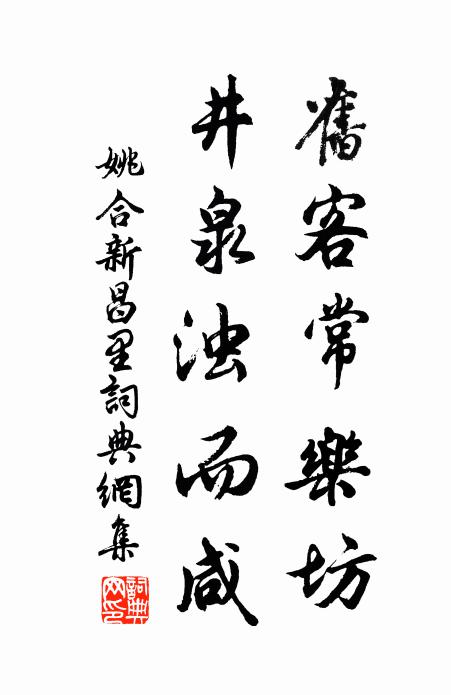 舊客常樂坊
井泉浊而咸
姚合新昌里詞典網集
詞典網印